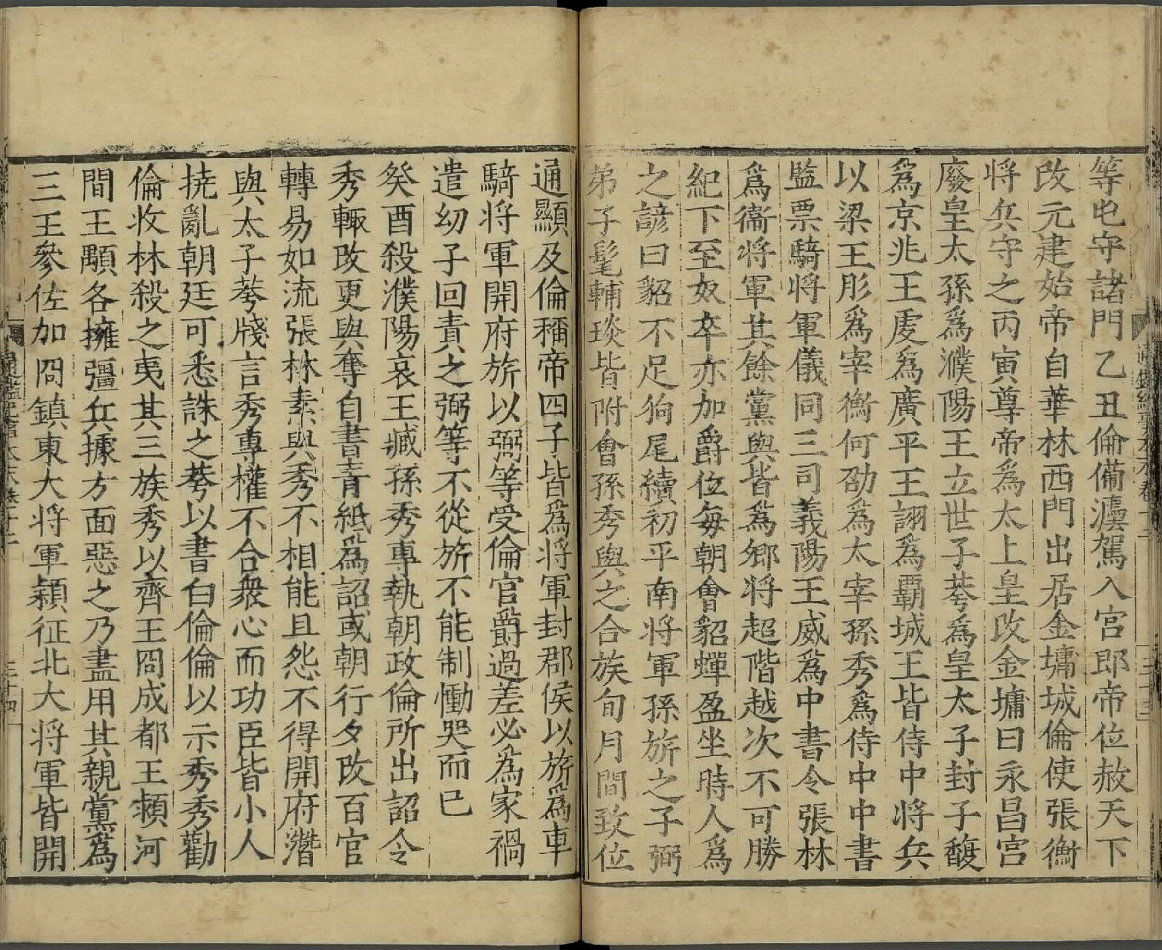 等屯守諸門乙丑倫備灋駕入宮即帝位赦天下
改元建始帝自華林西門出居金墉城倫使張衡
将兵守之丙寅尊帝為太上皇改金墉曰永昌宮
廢皇太孫為濮陽王立世子荂為皇太子封子馥
為京兆王虔為廣平王詡為覇城王皆侍中将兵
以梁王肜為宰衡何劭為太宰孫秀為侍中中書
監票騎将軍儀同三司義陽王威為中書令張林
為衞将軍其餘黨與皆為郷将超階越次不可勝
紀下至奴卒亦加爵位毎朝會貂蟬盈坐時人為
之諺曰貂不足狗尾續初平南将軍孫旂之子弼
弟子髦輔琰皆附會孫秀與之合族旬月間致位
通顯及倫稱帝四子皆為将軍封郡侯以旂為車
騎将軍開府旂以弼等受倫官爵過差必為家禍
遣幼子回責之弼等不從旂不能制慟哭而已
癸酉殺濮陽哀王臧孫秀專執朝政倫所出詔令
秀輙改更與奪自書青紙為詔或朝行夕改百官
轉易如流張林素與秀不相能且怨不得開府潛
與太子荂牋言秀專權不合衆心而功臣皆小人
撓亂朝廷可悉誅之荂以書白倫倫以示秀秀勸
倫收林殺之夷其三族秀以齊王冏成都王頴河
間王顒各擁彊兵據方面惡之乃盡用其親黨為
三王參佐加冏鎮東大将軍潁征北大将軍皆開